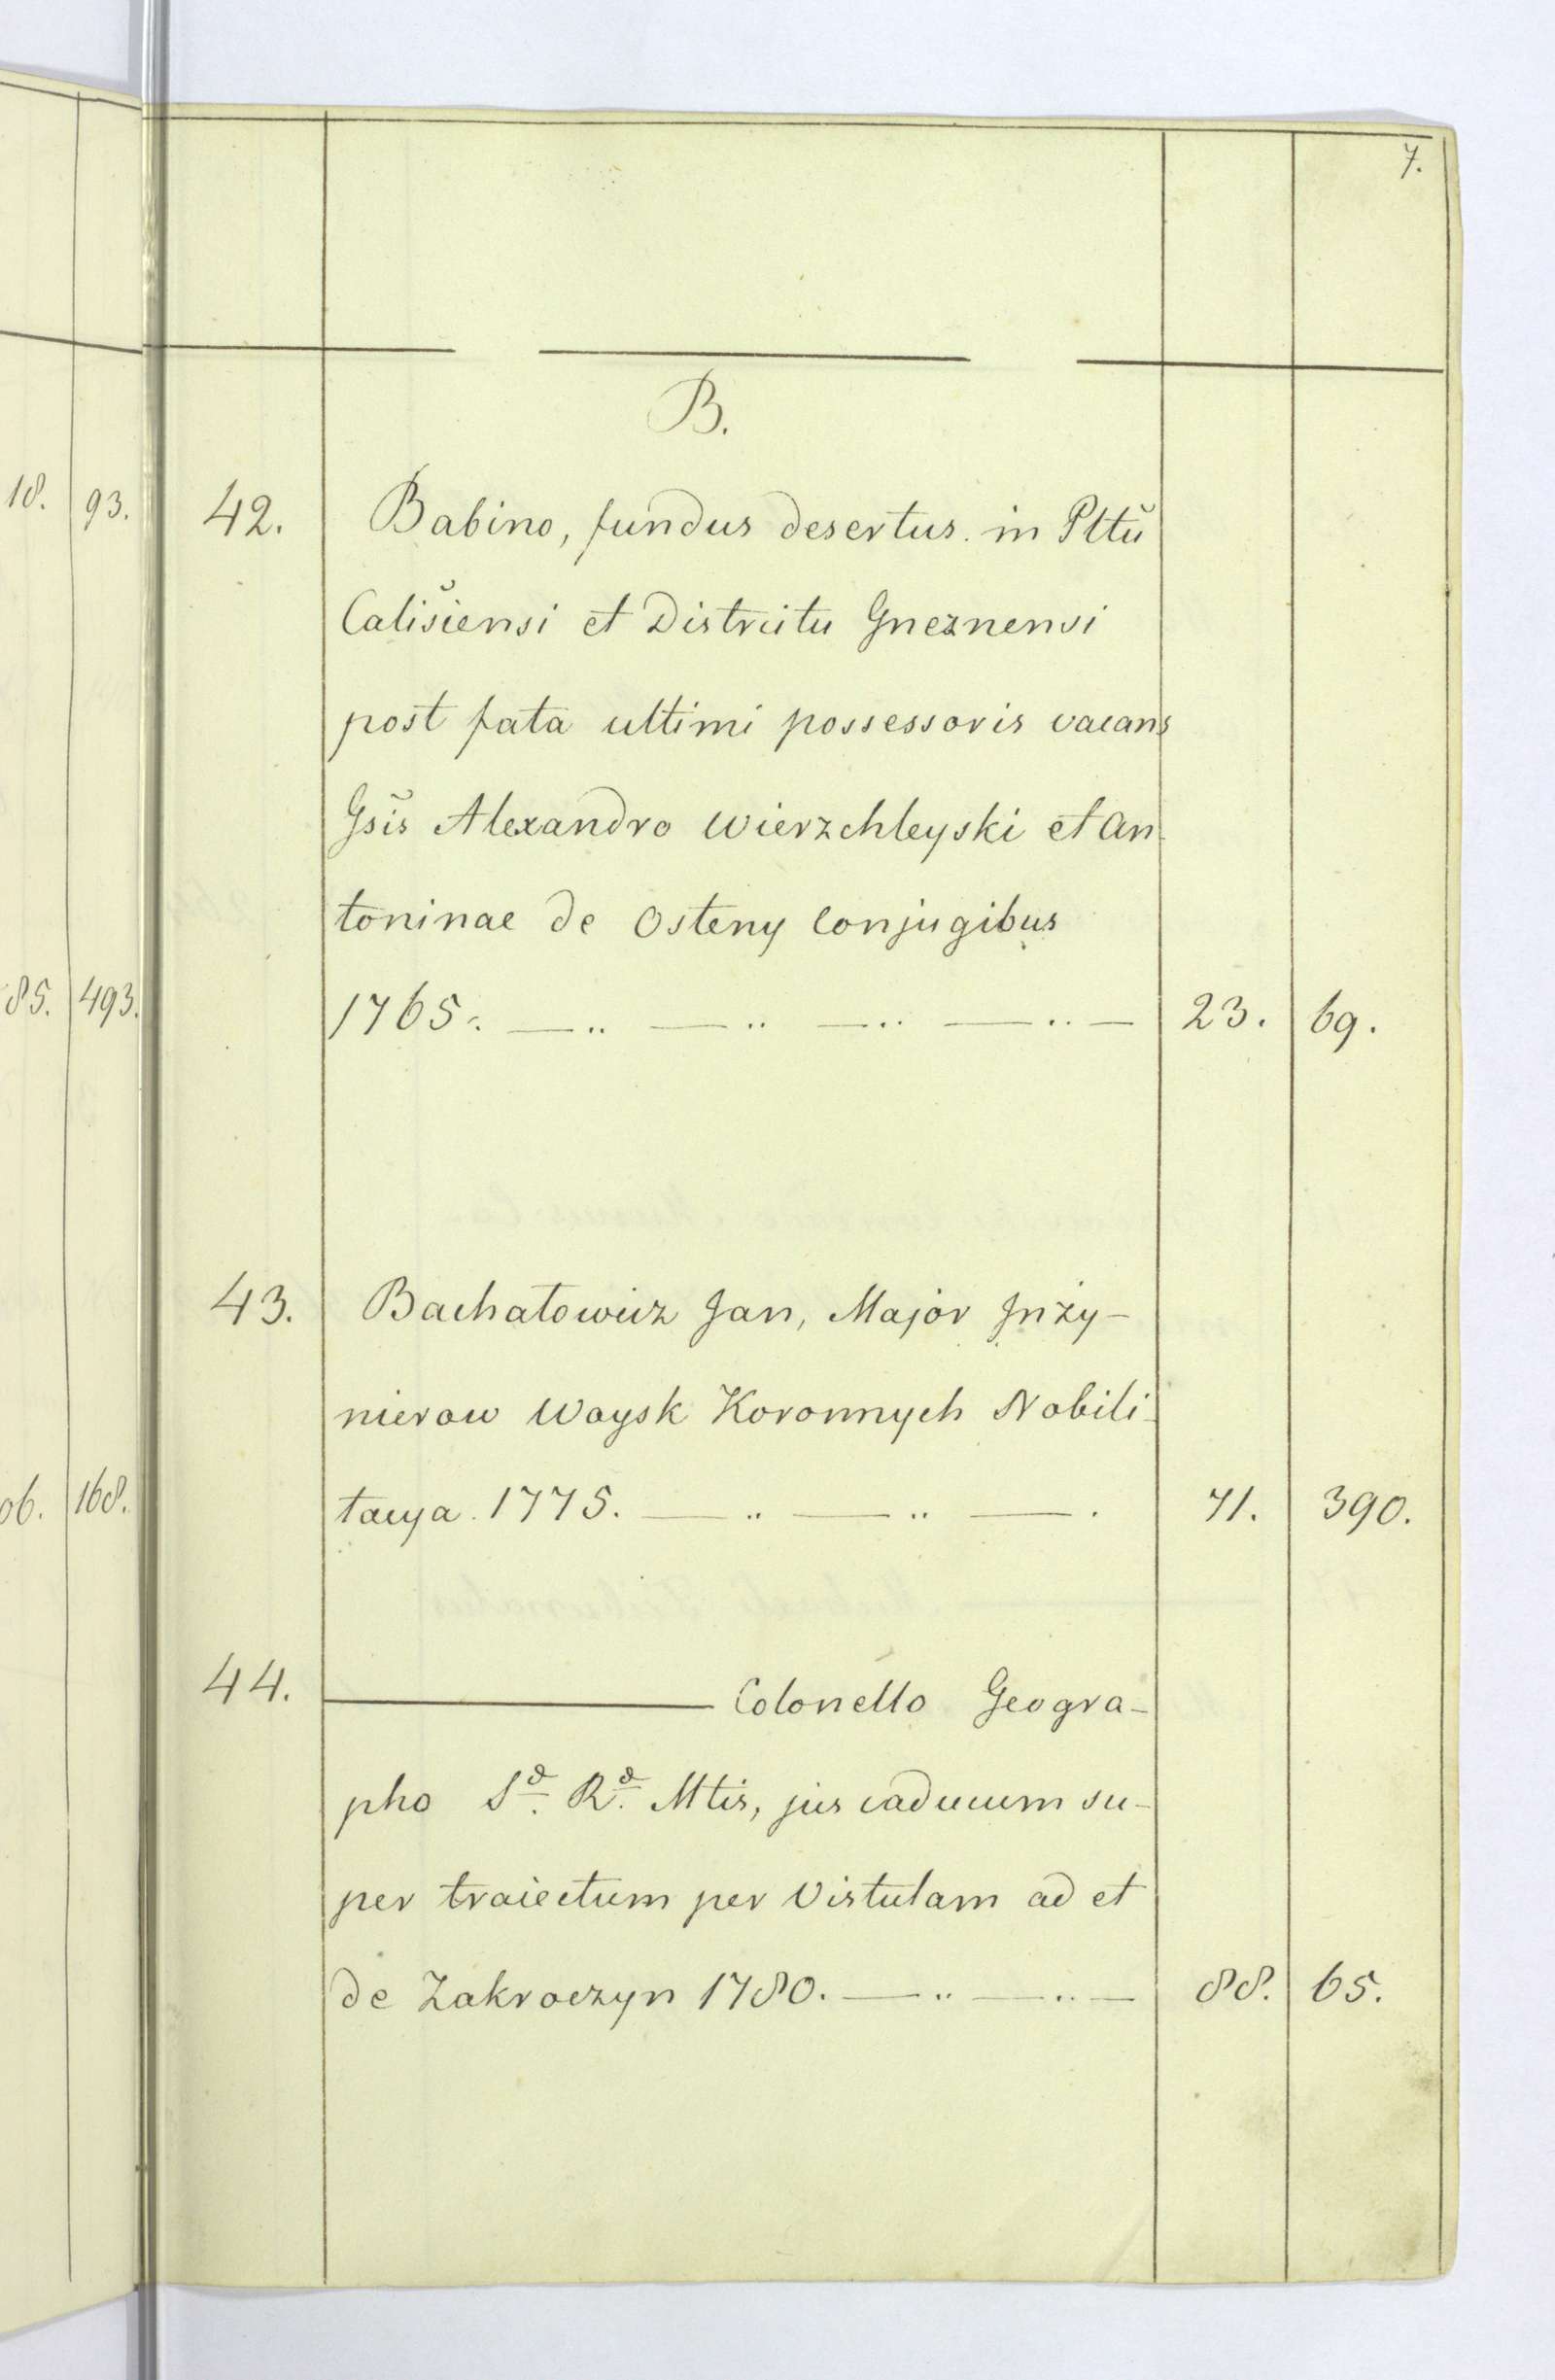 7.
B.
18. 93.
42. Babino, fundus desertus. in Pttũ
Calisiensi et Districtu Gneznensi
post fata ultimi possessoris vacans
Gsis Alexandro Wierzchleyski et An-
toninae de Osteny Conjugibus
85. 493.
1765. — „ — „ — „ — „ — 23. 69.
43. Bachatowicz Jan, Major Inży-
nierow Woysk Koronnych Nobili-
06. 168.
tacya. 1775. — „ — „ — . 71. 390.
44. ——— Colonello Geogra-
pho S^ae. R^ae. Mtis, jus caducum su-
per traiectum per Vistulam ad et
de Zakroczyn 1780. — „ — „ — 88. 65.